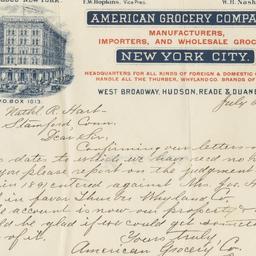 NEW YORK.
F.W. Hopkins, Vice Pres.
W.H. Nash
AMERICAN GROCERY COMPA
MANUFACTURERS,
IMPORTERS, AND WHOLESALE GROC
NEW YORK CITY.
HEADQUARTERS FOR ALL KINDS OF FOREIGN & DOMESTIC
HANDLE ALL THE THURBER, WHYLAND CO. BRANDS OF
WEST BROADWAY, HUDSON, READE & DUANE
P.O. BOX 1013.
July
Nathl R. Hart
Stamford Conn.
Dear Sir,
Confirming our letters
dates to which we have recd no
you please report on the judgment
in 1891 entered against Mrs. Geo. H
in favor Thurber Whyland Co.
account is now our property &
ld be glad if we could get
of it.
Yours truly
American Grocery Co.